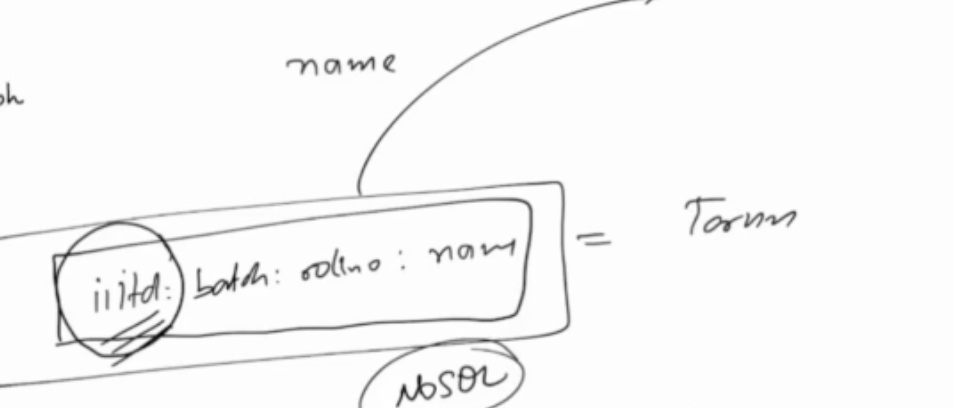 name
iiitd: batch: rollno: name = Tarun
NoSQL